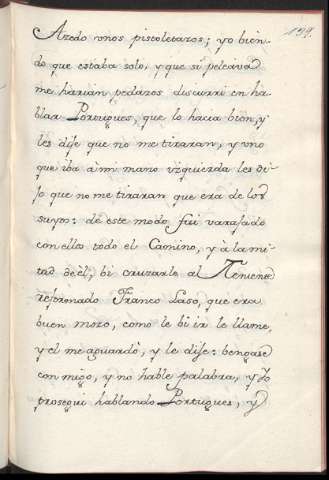 199.
Azedo unos pistoletazos; yo bien-
do que estaba solo, y que si peleava
me harian pedazos discurri en ha-
blar Portugues, que lo hacia bien, y
les dije que no me tiraran, y uno
que iba à mi mano yzquierda les di-
jo que no me tiraran que era de los
suyos: de este modo fui varajado
con ellos todo el Camino, y à la mi-
tad de èl, bi cruzarle al Teniente
reformado Franco Laso, que era
buen mozo, como le bi ir le llame,
y el me aguardò, y le dije: bengase
con migo, y no hable palabra, y yo
prosegui hablando Portugues, y